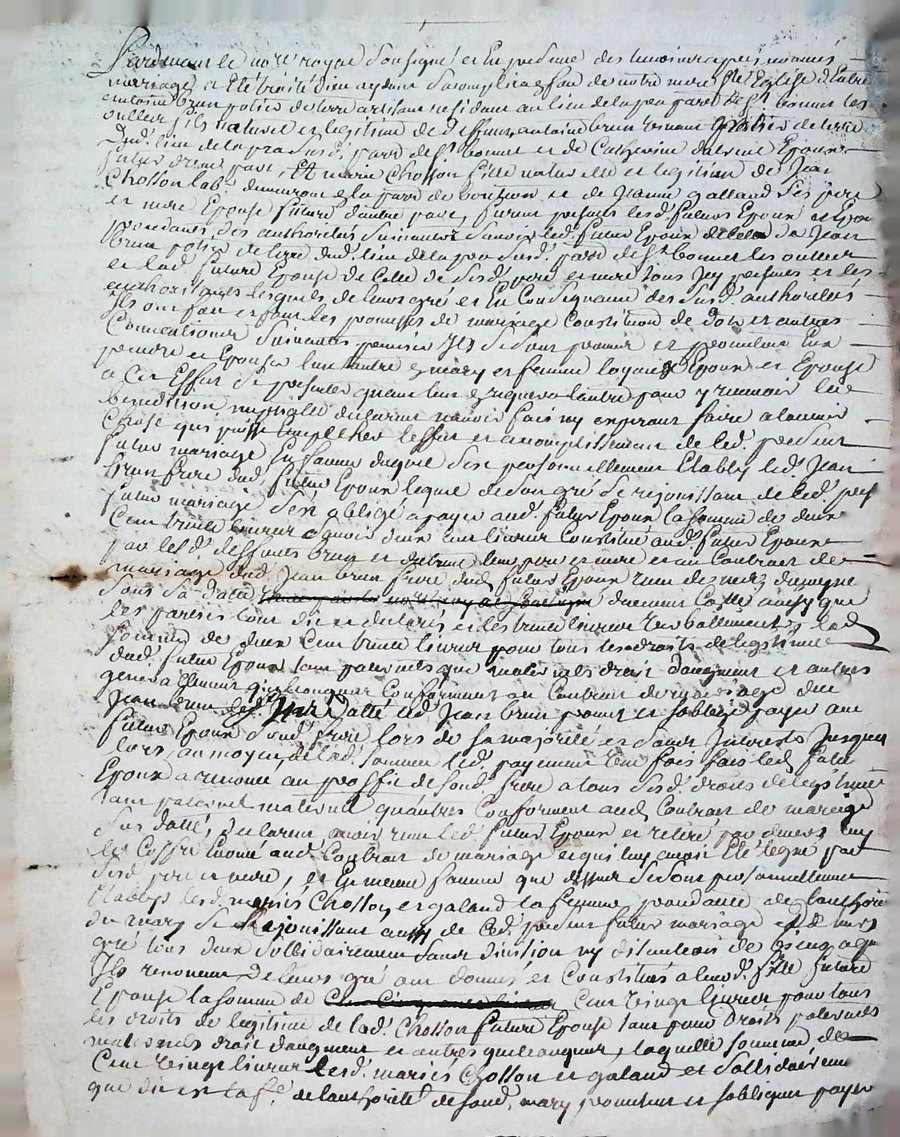 Pardevant le nore royal soussigné et en presence des temoins apres nommés
mariage a été traité dieu aydant s'acomplira en fasse de notre mere Ste Eglise d'Entre
antoine brun potier de terre artisan residant au lieu de la pra parsse de St bonnet les
oulles fils naturel et legitime de deffunt antoine brun vivant potier de terre
dud. lieu de la pra susd. parsse de St bonnet et de Catherine Epoux
futur d'une part, Et marie Chosson fille naturelle et legitime de Jean
Chosson labr demeurant a la parsse de et de Jeanne galland ses pere
et mere Epouse future d'autre part, furent presents lesd. futurs Epoux et Epouse
procedants des authorités suivantes savoir led. futur Epoux de Celle de Jean
brun potier de terre dud. lieu de la pra susd. parsse de St bonnet les oulles
et lad. future Epouse de Celle de sesd. pere et mere tous Icy presents et les
authorisants lesquels de leurs gré et En Consequence des susd. authorités
Ils ont fait et font les promesses de mariage Constitution de dot et autres
Conventions suivantes premier Ils se sont promis et promettent l'un
prendre et Epouser l'un l'autre en mary et femme loyaux Epoux et Epouse
a Cet Effet se presenter quand l'un En requerra l'autre pour y recevoir la
benediction nuptialle declarent n'avoir fait ny esperant faire a l'avenir
Chose qui puisse Empecher l'effet et accomplissement de led. present
futur mariage En faveur duquel s'est personnellement Etably led. Jean
brun frere dud. futur Epoux lequel de son gré se rejouissant de led. pest
futur mariage s'est obligé a payer aud. futur Epoux la somme de deux
Cent trente livres sçavoir deux cent livres Constitué aud. futur Epoux
par lesd. deffunts brun et leur pere et mere et au Contrat de
mariage dud. Jean brun frere dud. futur Epoux
sous sa datte duement Collé ainsy que
les parties l'ont dit et declaré et les trente livres lad.
somme de deux Cent trente livres pour tous les droits de legitime
dud. futur Epoux tant paternels que maternels droit d'augment et autres
generallement quelconques Conformement au Contrat de mariage dud.
Jean brun datté led. Jean brun promet et s'oblige payer au
futur Epoux sond. frere lors de sa majorité et sans Interets Jusques
lors, au moyen de lad. somme led. payement une fois fait led. futur
Epoux a renoncé au proffit de sond. frere a tous susd. droits de legitime
tant paternel maternel qu'autres Conformement aud. Contrat de mariage
sus datté, declarent avoir led. futur Epoux et retiré par devers luy
le Coffre Enoncé aud. Contrat de mariage et qui luy avoit Eté legué par
sesd. pere et mere, et En meme faveur que dessus se sont personnellement
Etablys lesd. mariés Chosson et galand la femme procedante de l'authorité
du mary se rejouissant aussy de led. present futur mariage
gré tous deux sollidairement sans division ny discution de biens a quoy
Ils renoncent de leurs gré ont donnés et Constitués a leurd. fille future
Epouse la somme de Cent vingt livres pour tous
les droits de legitime de lad. Chosson future Epouse tant pour droits paternels
maternels droit d'augment et autres quelconques, laquelle somme de
Cent vingt livres lesd. mariés Chosson et galand et sollidairement
que dit est la fe. de l'authorité de sond. mary promettent et s'obligent payer